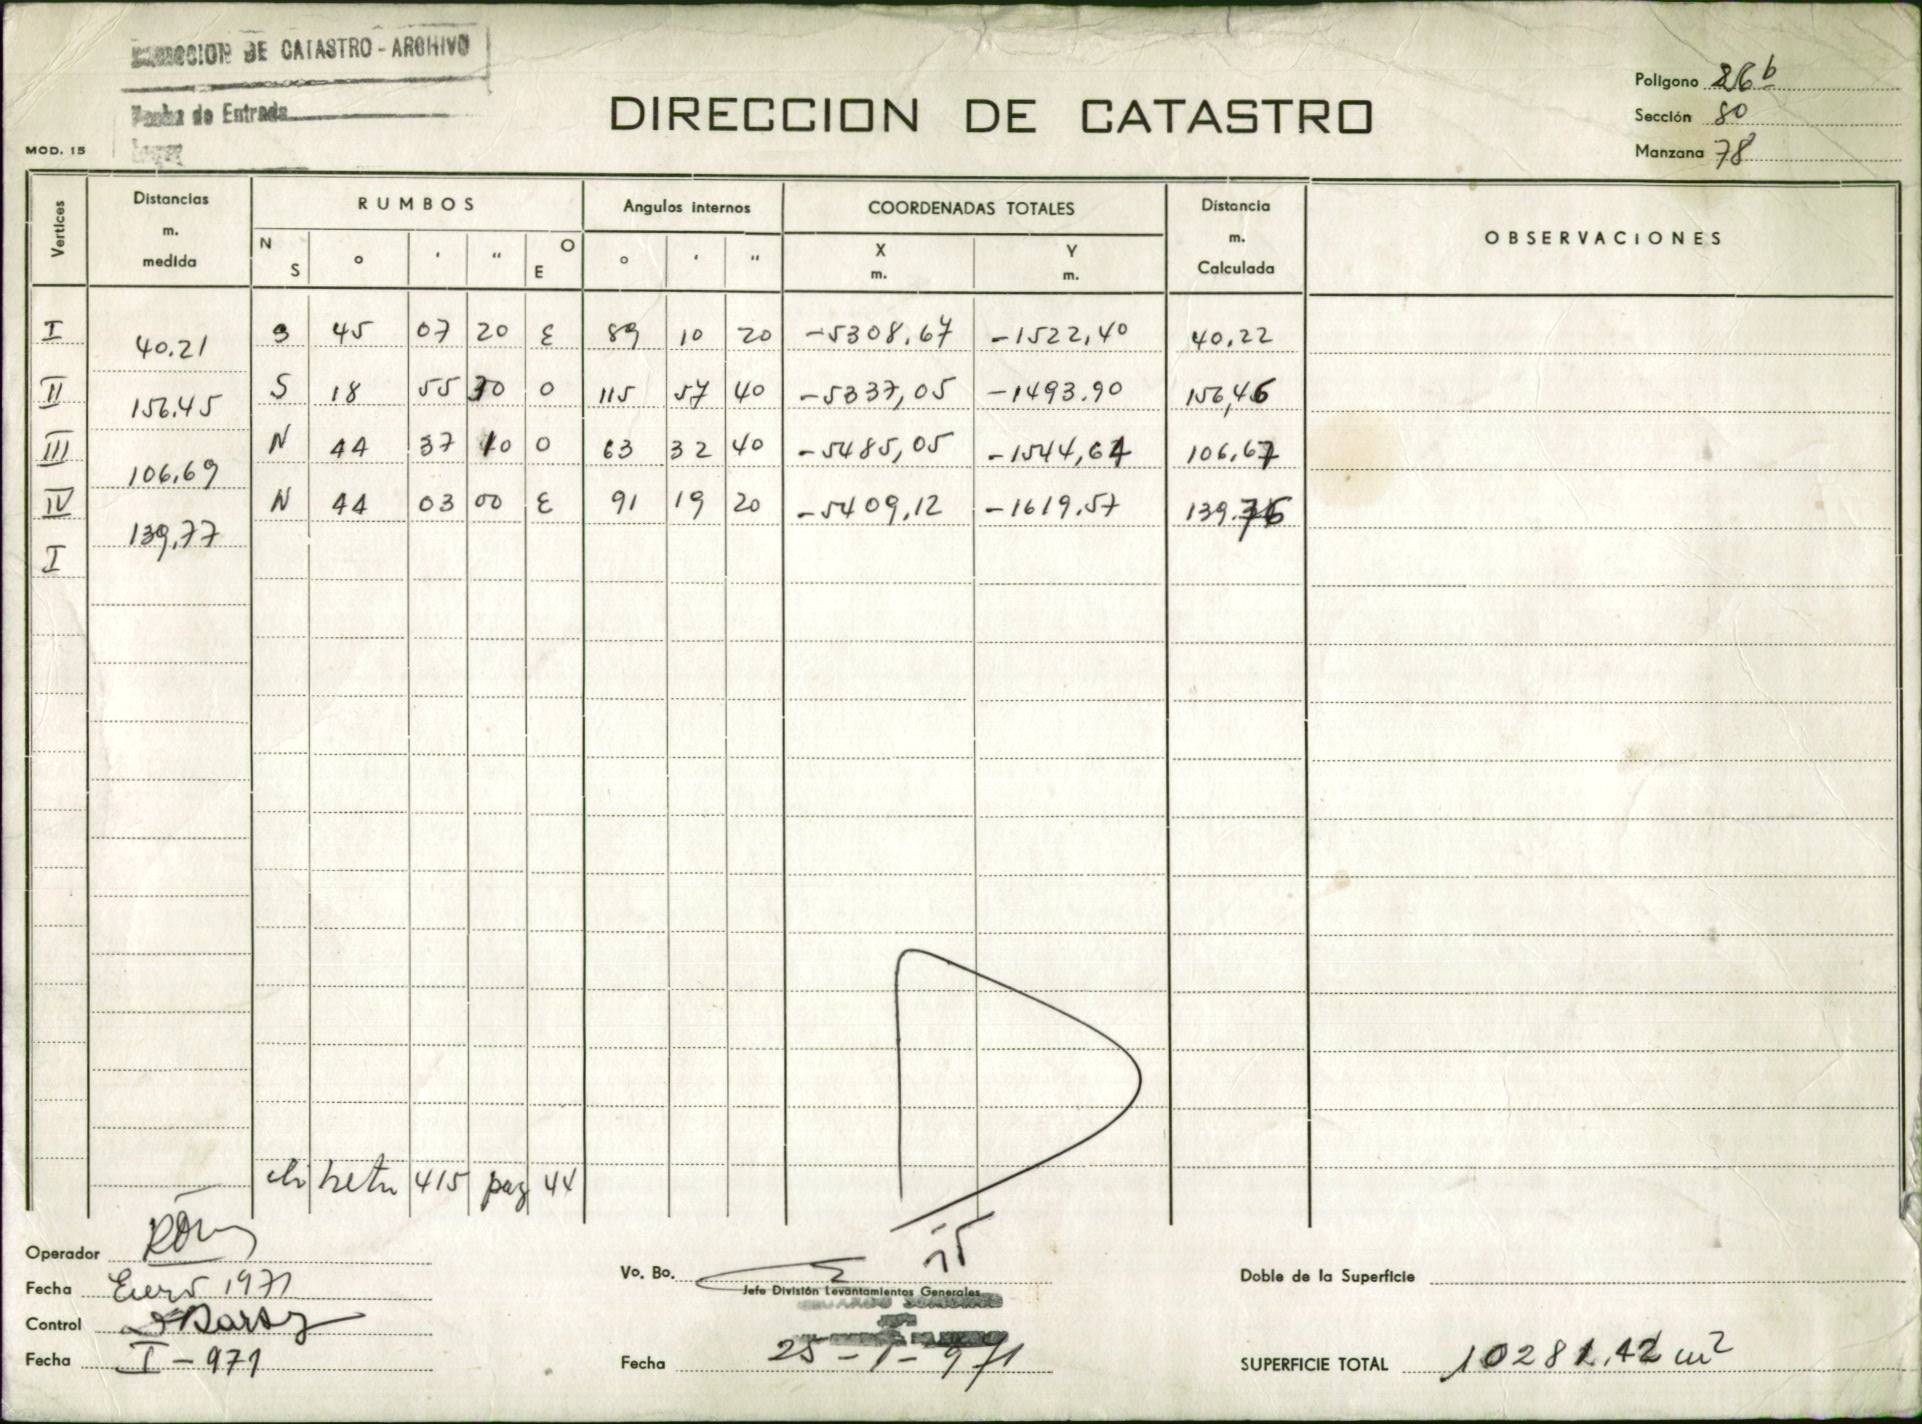 DE CATASTRO - ARCHIVO
Fecha de Entrada
MOD. 15
DIRECCION DE CATASTRO
Poligono 86 b
Sección 80
Manzana 78
Vertices
Distancias m. medida
RUMBOS
Angulos internos
COORDENADAS TOTALES
Distancia m. Calculada
OBSERVACIONES
N S ° ' " O E ° ' " X m. Y m.
I 40.21 S 45 07 20 E 89 10 20 -5308,67 -1522,40 40,22
II 156.45 S 18 55 30 O 115 57 40 -5337,05 -1493.90 156,46
III 106,69 N 44 37 10 O 63 32 40 -5485,05 -1544,64 106,67
IV 139,77 N 44 03 00 E 91 19 20 -5409,12 -1619.57 139.76
I
libreta 415 pag 44
Operador
Fecha Enero 1971
Control
Fecha I - 971
Vo. Bo.
Jefe División Levantamientos Generales
Fecha 25 - 1 - 971
Doble de la Superficie
SUPERFICIE TOTAL 10281.42 m2